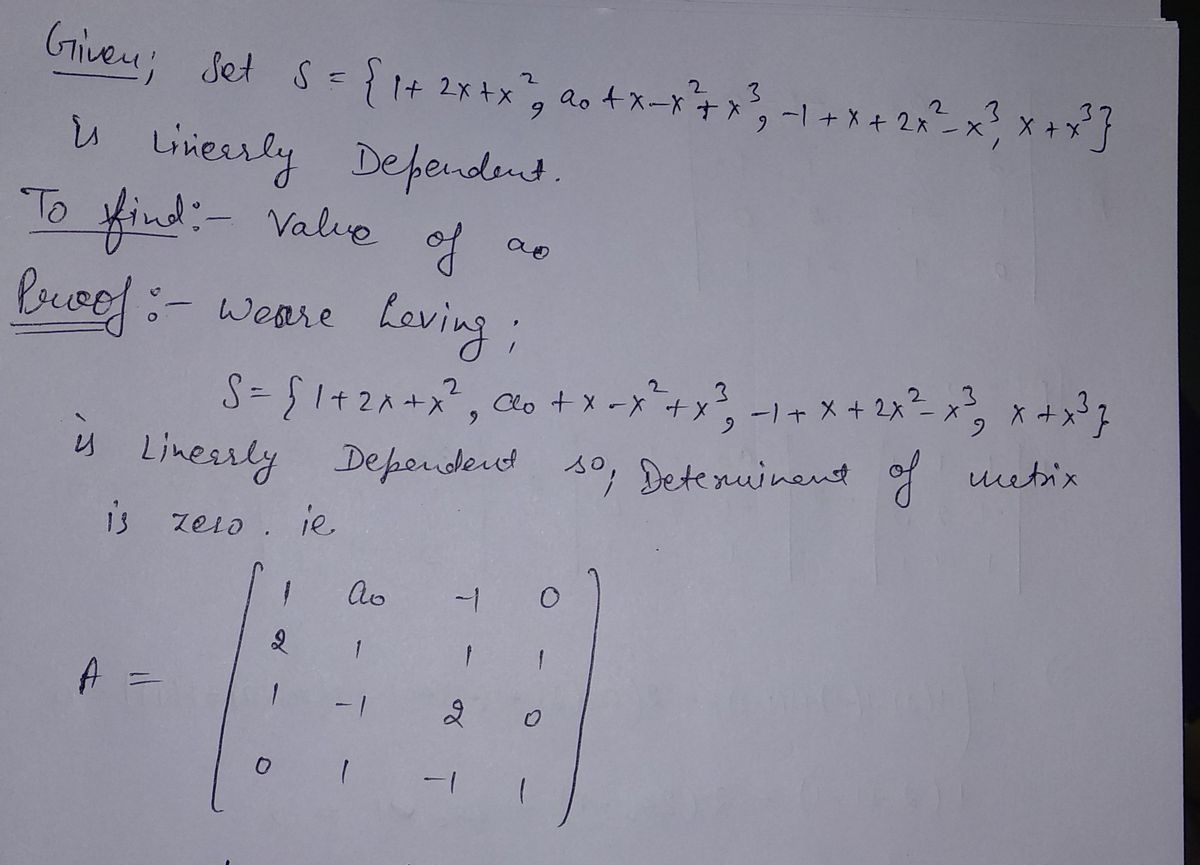 Given; Set S = { 1 + 2x + x², a₀ + x - x² + x³, -1 + x + 2x² - x³, x + x³ }
is Linearly Dependent.
To find :- Value of a₀
Proof :- We are having ;
S = { 1 + 2x + x², a₀ + x - x² + x³, -1 + x + 2x² - x³, x + x³ }
is Linearly Dependent so, Determinant of metrix
is zero. ie.
1 a₀ -1 0
2 1 1 1
A =
1 -1 2 0
0 1 -1 1